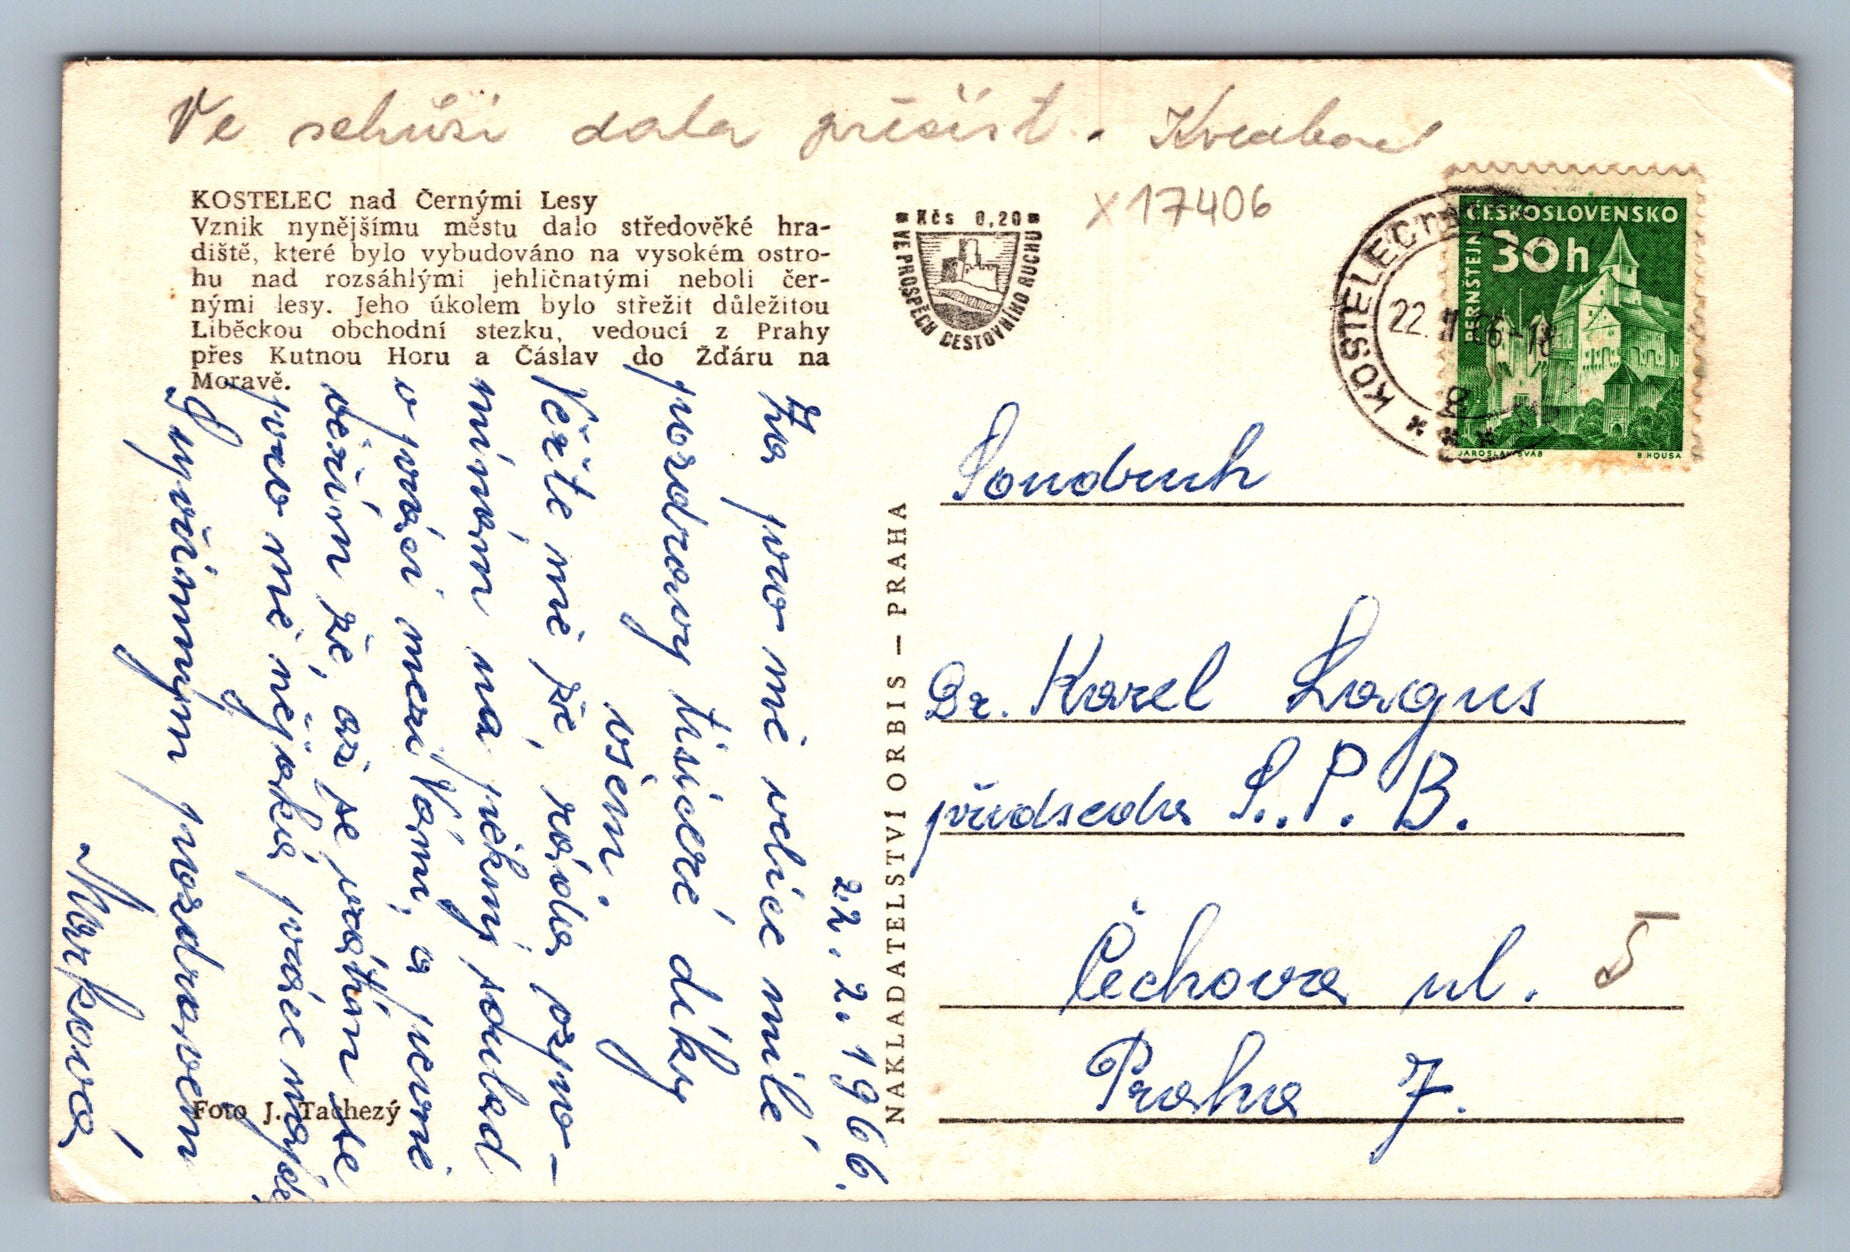 Ve schůzi dala přečíst. Kvrabovel
X 17406
KOSTELEC nad Černými Lesy
Vznik nynějšímu městu dalo středověké hra-
diště, které bylo vybudováno na vysokém ostro-
hu nad rozsáhlými jehličnatými neboli čer-
nými lesy. Jeho úkolem bylo střežit důležitou
Liběckou obchodní stezku, vedoucí z Prahy
přes Kutnou Horu a Čáslav do Žďáru na
Moravě.
Kčs 0,20
VE PROSPĚCH CESTOVNÍHO RUCHU
KOSTELEC
22. II 66-18
ČESKOSLOVENSKO
30h
PERNŠTEJN
JAROSLAV ŠVÁB
B. HOUSA
22. 2. 1966.
Za pro mě velice milé
pozdravy tisíceré díky
všem.
Věřte mě že, ráda vzpo-
mínám na pěkný soulad
v práci mezi Vámi, a pevně
věřím že, až se vrátím se
pro mě nějaká práce najde
S upřímným pozdravem
Marková
Foto J. Tachezý
NAKLADATELSTVÍ ORBIS — PRAHA
Soudruh
Dr. Karel Lagus
předseda S. P. B.
Čechova ul.
Praha 7.
5